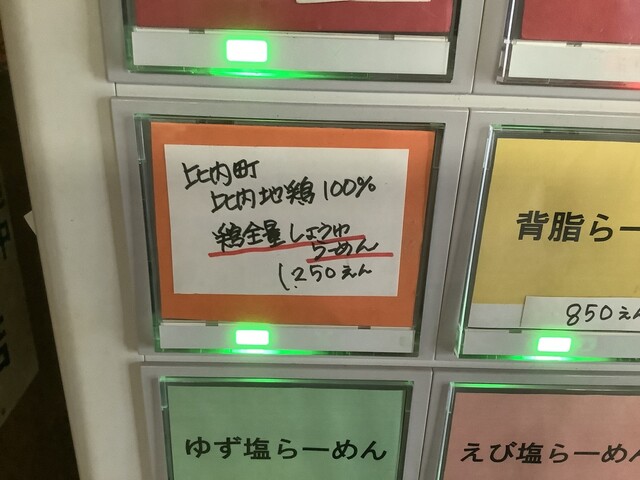 比内町
比内地鶏100%
鶏全量しょうゆ
らーめん
1,250えん
背脂らー
850えん
ゆず塩らーめん
えび塩らーめん